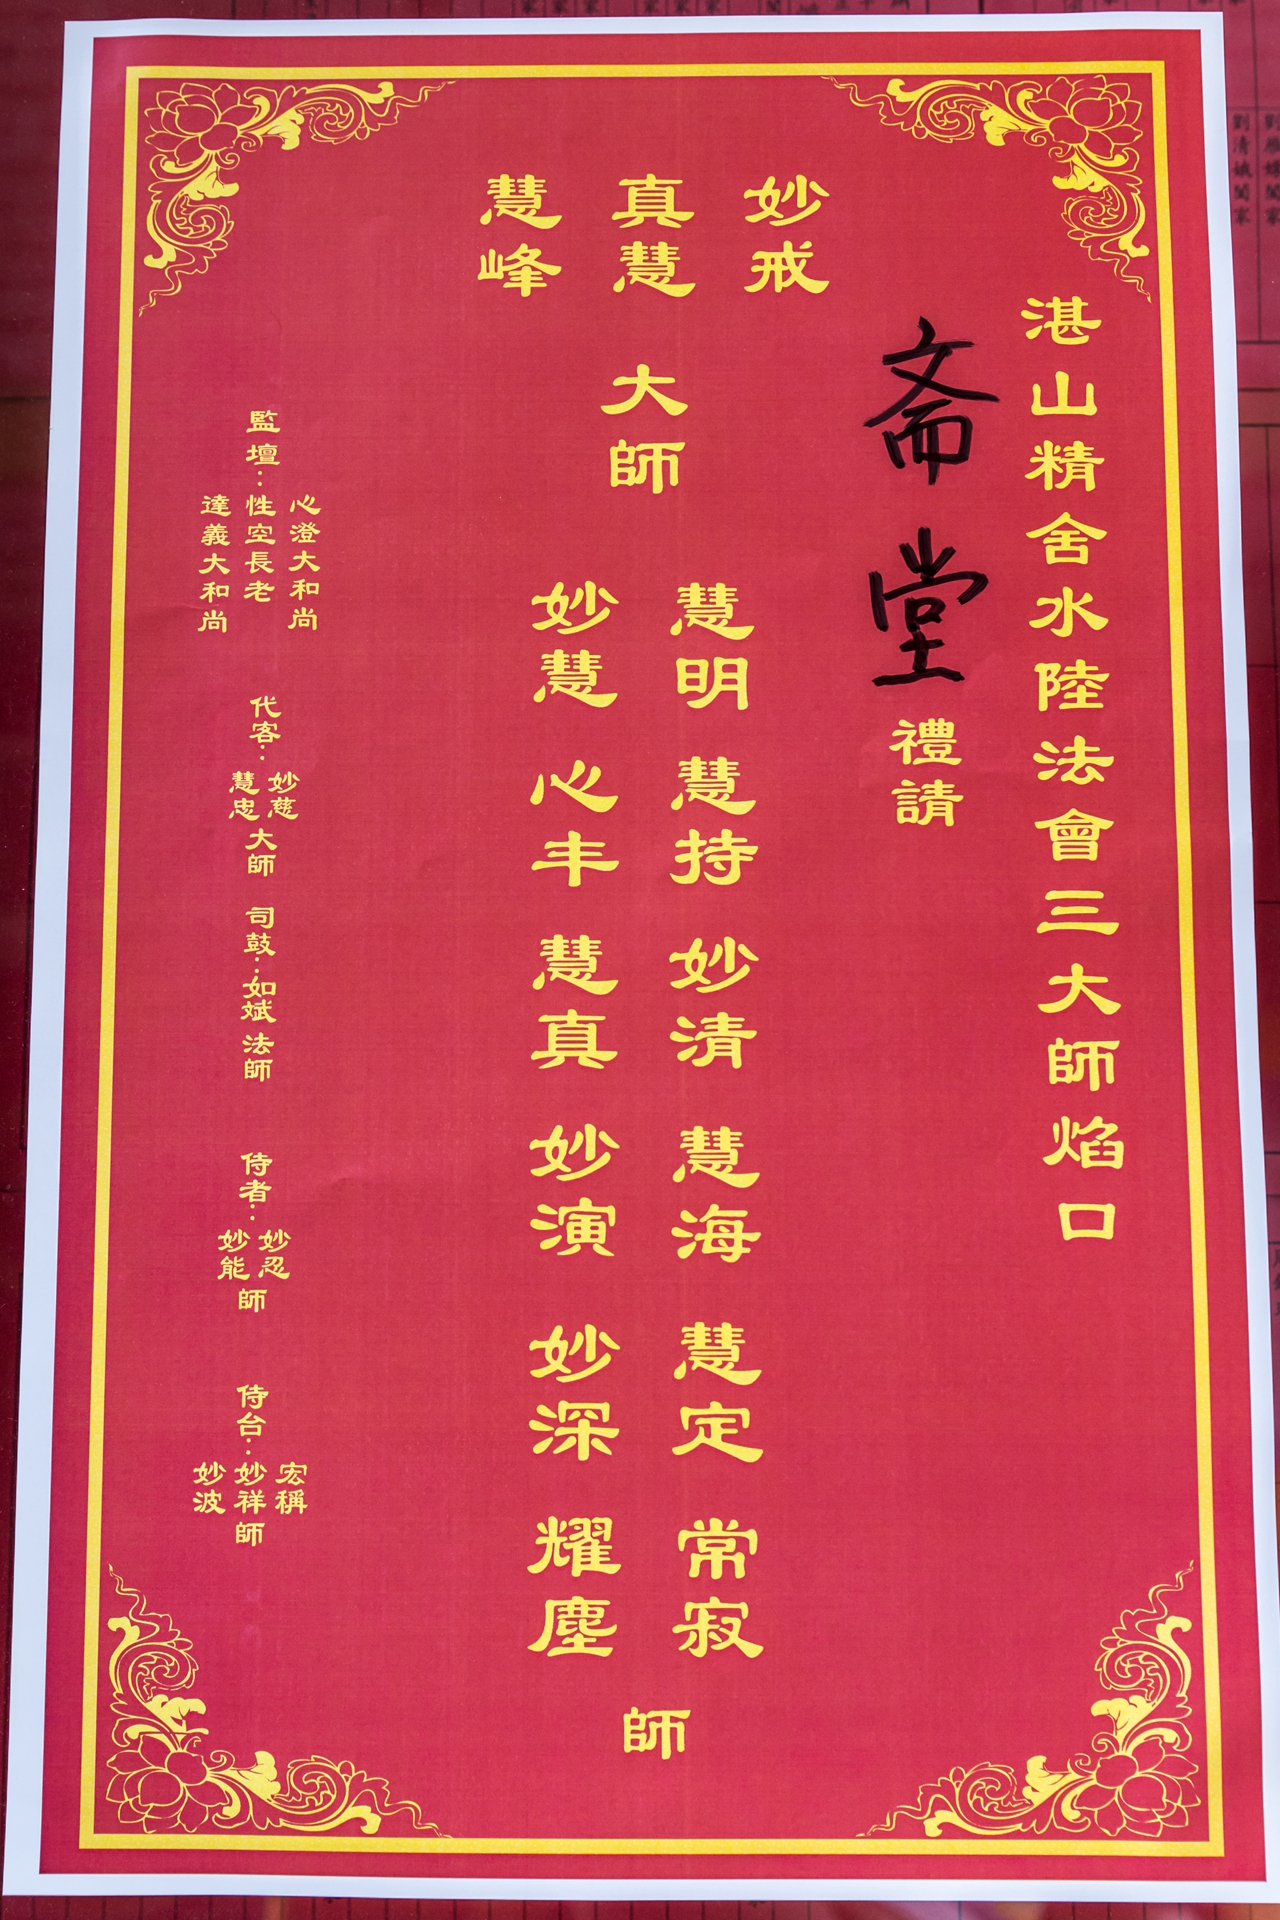 湛山精舍水陸法會三大師焰口
斋堂
禮請
妙戒
真慧
慧峰
大師
慧明 慧持 妙清 慧海 慧定 常寂
妙慧 心丰 慧真 妙演 妙深 耀塵
師
監壇：
心澄大和尚
性空長老
達義大和尚
代客：
妙慈
慧忠
大師
司鼓：如斌法師
侍者：
妙忍
妙能
師
侍台：
宏稱
妙祥
妙波
師